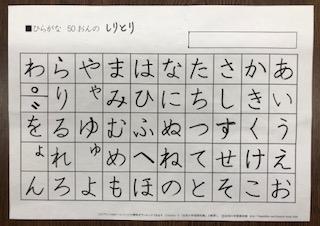 ■ひらがな 50おんの しりとり
あいうえお
かきくけこ
さしすせそ
たちつてと
なにぬねの
はひふへほ
まみむめも
やゃゆゅよ
らりるれろ
わ゜゛をょん